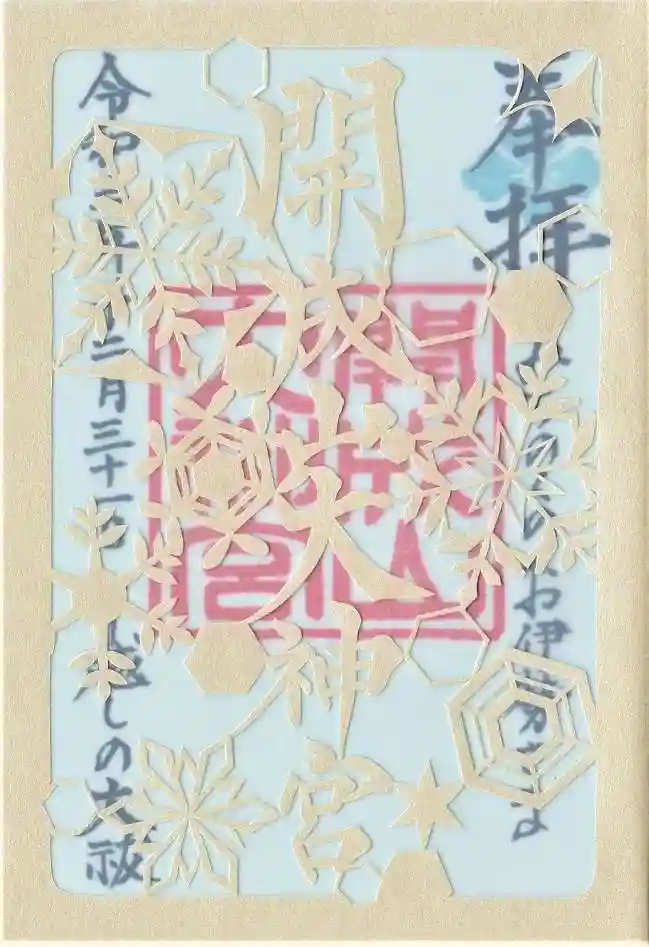 奉拝
のお伊勢さま
開成山大神宮
開成山
大神宮
令和 年十二月三十一日 越しの大祓